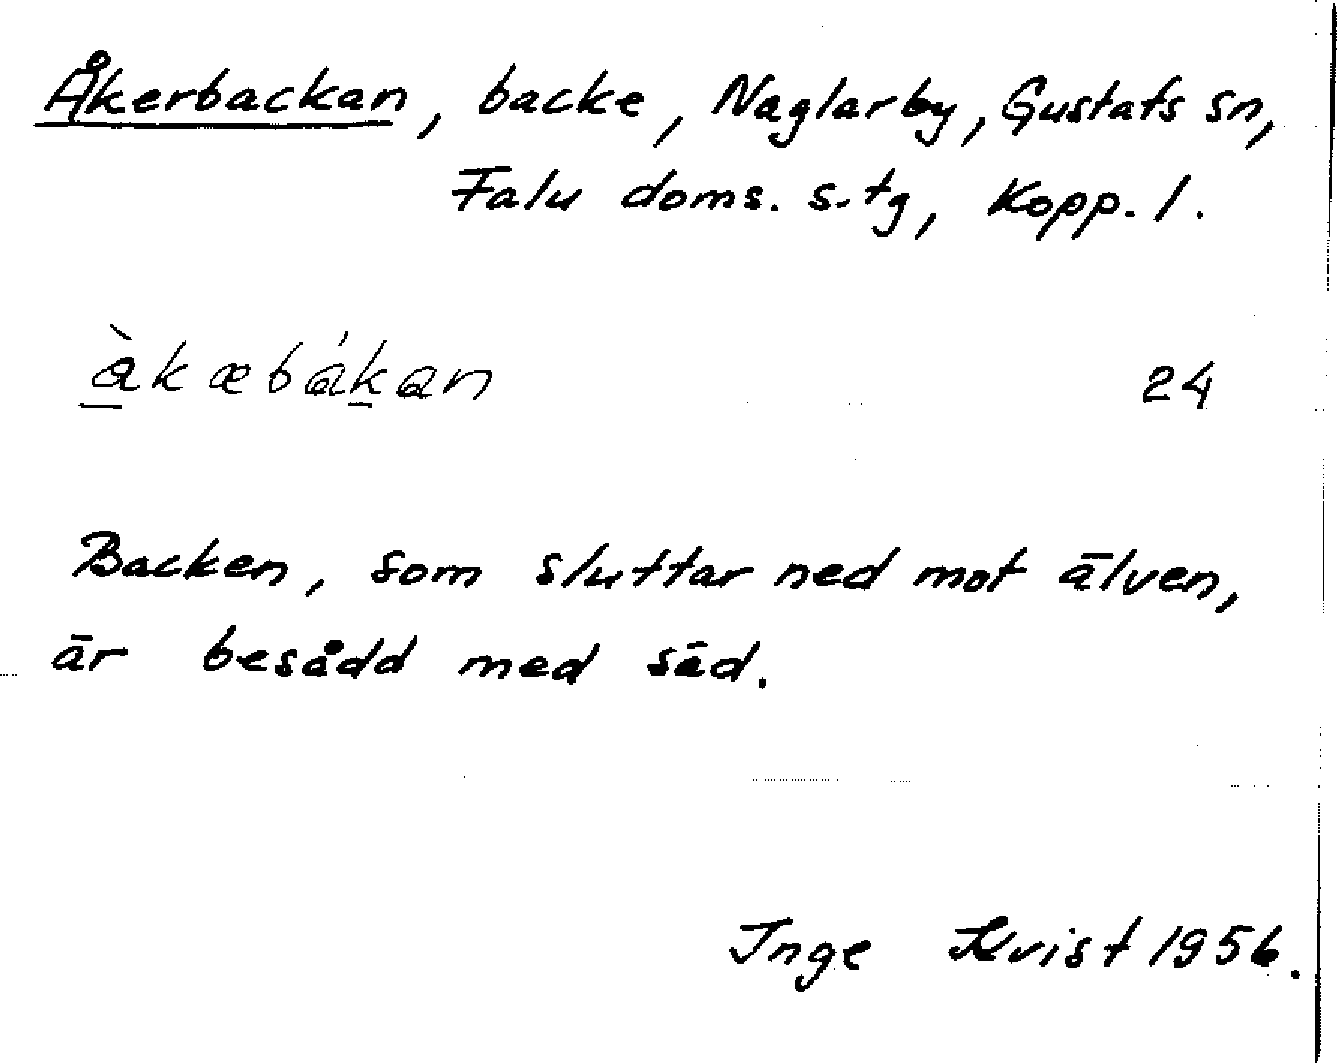 Åkerbackan, backe, Naglarby, Gustafs sn,
Falu doms. s. tg, Kopp. l.
àkæbákan 24
Backen, som sluttar ned mot älven,
är besådd med säd.
Inge Kvist 1956.